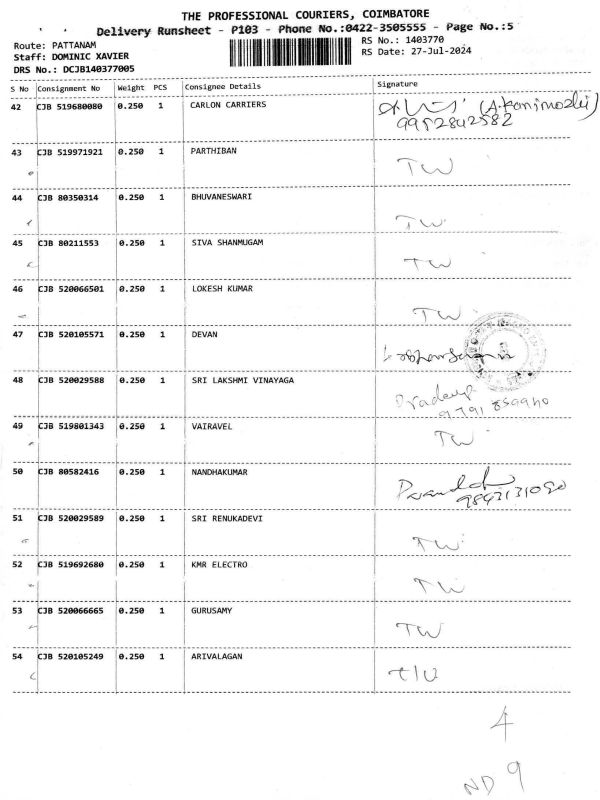 THE PROFESSIONAL COURIERS, COIMBATORE
Delivery Runsheet - P103 - Phone No.:0422-3505555 - Page No.:5
Route: PATTANAM
Staff: DOMINIC XAVIER
DRS No.: DCJB140377005
RS No.: 1403770
RS Date: 27-Jul-2024
S No Consignment No Weight PCS Consignee Details Signature
42 CJB 519680080 0.250 1 CARLON CARRIERS
9952842582
43 CJB 519971921 0.250 1 PARTHIBAN TW
44 CJB 80350314 0.250 1 BHUVANESWARI TW
45 CJB 80211553 0.250 1 SIVA SHANMUGAM TW
46 CJB 520066501 0.250 1 LOKESH KUMAR TW
47 CJB 520105571 0.250 1 DEVAN
48 CJB 520029588 0.250 1 SRI LAKSHMI VINAYAGA Pradeep
49 CJB 519801343 0.250 1 VAIRAVEL TW
50 CJB 80582416 0.250 1 NANDHAKUMAR
51 CJB 520029589 0.250 1 SRI RENUKADEVI TW
52 CJB 519692680 0.250 1 KMR ELECTRO TW
53 CJB 520066665 0.250 1 GURUSAMY TW
54 CJB 520105249 0.250 1 ARIVALAGAN
4
ND 9